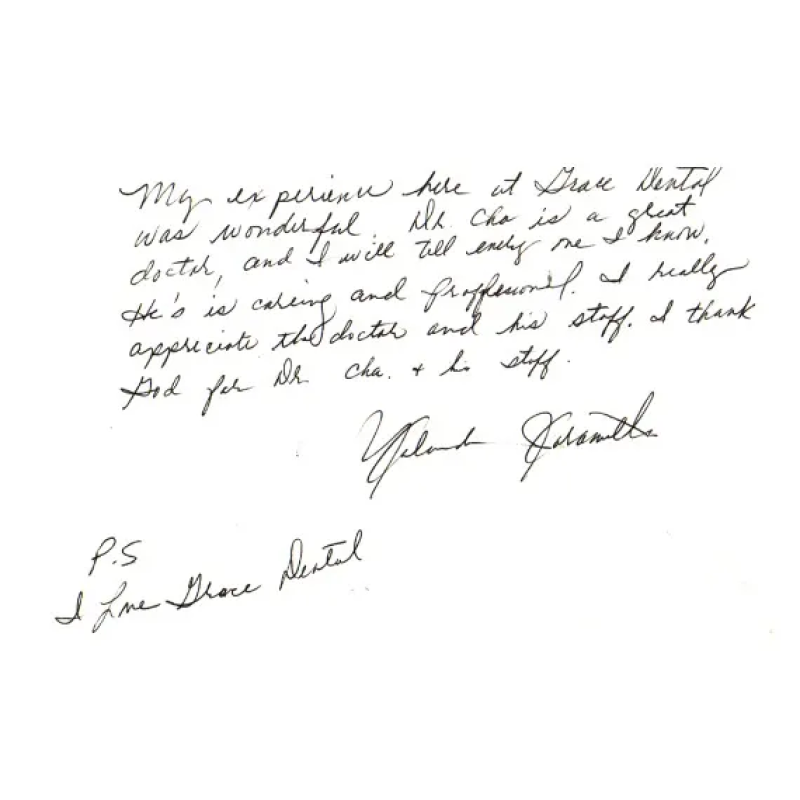 My experience here at Grace Dental
was wonderful. Dr. Cha is a great
doctor, and I will tell every one I know.
He's is caring and proffesional. I really
appreciate the doctor and his staff. I thank
God for Dr. Cha. + his staff.
Yolanda Jaramillo
P.S
I Love Grace Dental